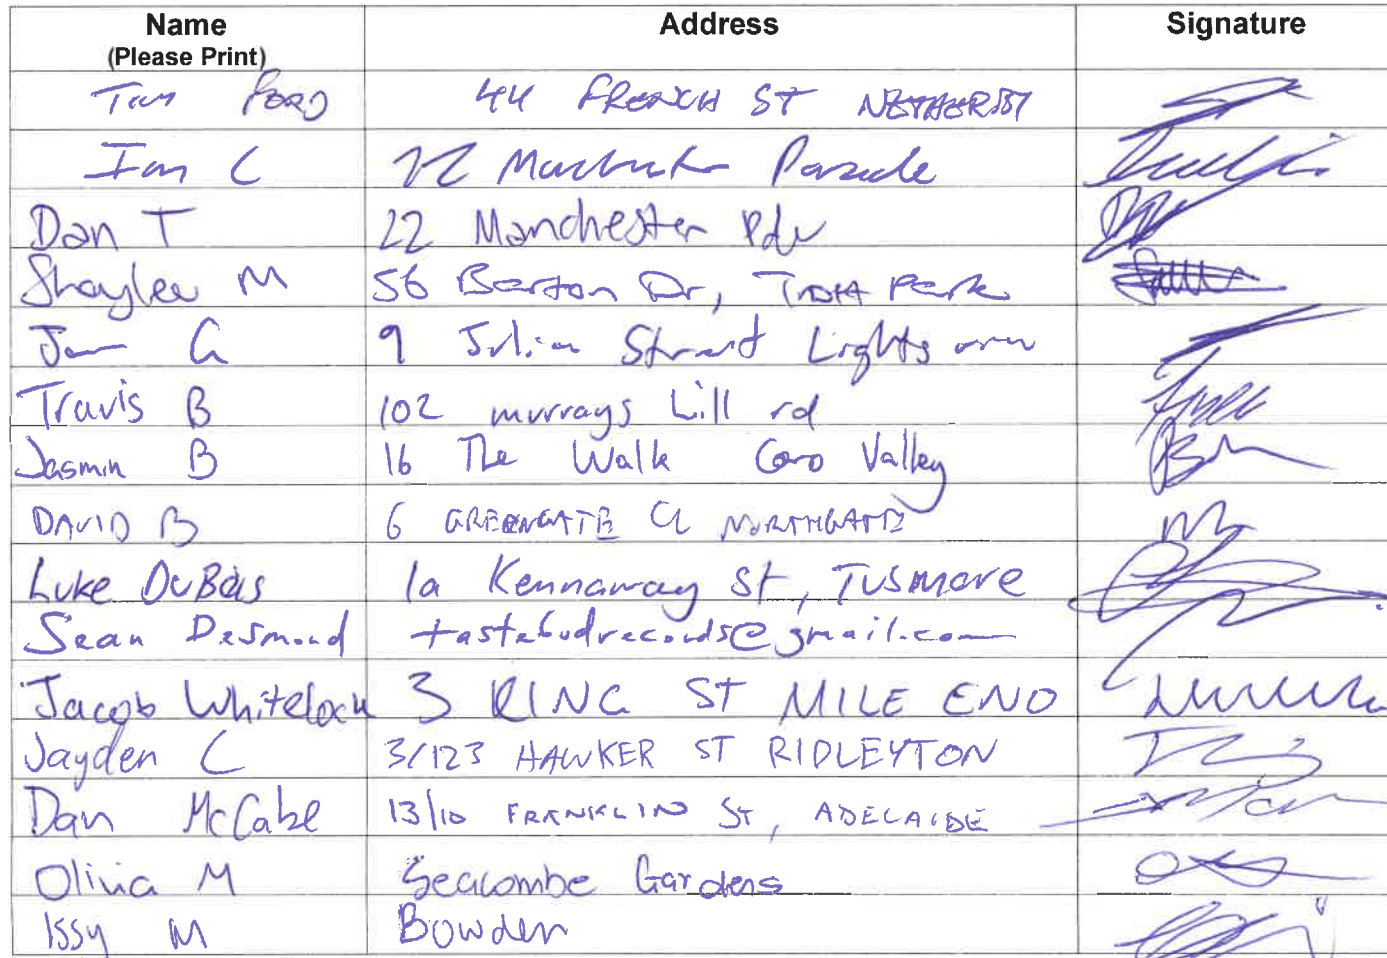 Name Address Signature
(Please Print)
Tim FORD 44 FRENCH ST NETHERBY
Ian C 22 Manchester Parade
Dan T 22 Manchester Pde
Shaylee M 56 Barton Dr, Trott Park
G 9 Julian Street Lights
Travis B 102 murrays hill rd
Jasmin B 16 The Walk Coro Valley
DAVID B 6 GREENGATE CL NORTHGATE
Luke DuBois 1a Kennaway St, TUSmore
Sean Desmond tastebudrecords@gmail.com
Jacob Whitelock 3 KING ST MILE END
Jayden C 3/123 HAWKER ST RIDLEYTON
Dan McCabe 13/10 FRANKLIN ST, ADELAIDE
Olivia M Seacombe Gardens
Issy M Bowden